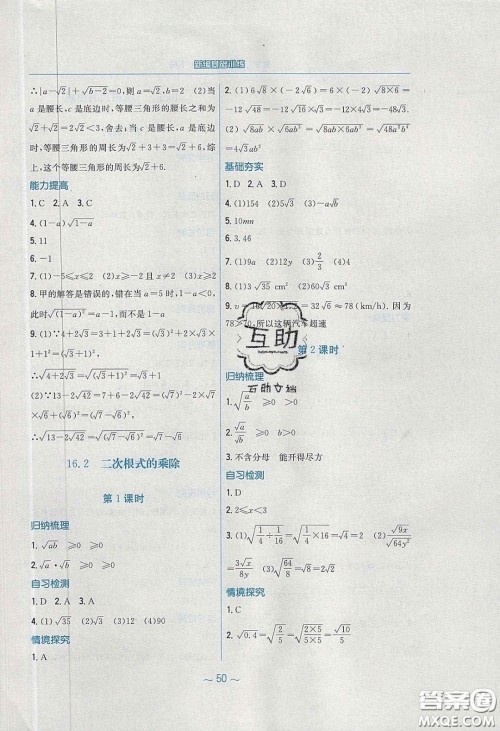 新编基础训练
∴|a-√2|+√(b-2)=0 ∴a=√2 b=2 (2)当
a 是腰长，c 是底边时，等腰三角形的腰长之和为
√2+√2=2√2<6，舍去；当 c 是腰长，a 是底边
时，等腰三角形的周长为√2+3+3=√2+6，综
上，这个等腰三角形的周长为√2+6．
能力提高
1. C 2. A 3. C
4. (1-a)√(1-a)
5. 11
6. -1
7. (1)-5≤x≤2 (2)x≥-2 且 x≠2 (3)x≥2
8. 甲的解答是错误的，错在当 a=5 时，1-a=
a-1，而不是 1-a．
9. (1)∵4+2√3=1+3+2√3=1²+(√3)²+2×1×
√3=(1+√3)²，
∴√(4+2√3)=√((1+√3)²)=1+√3
(2)∵13-2√42=7+6-2√42=(√7)²-2×
√7×√6+(√6)²=(√7-√6)²，
∴√(13-2√42)=√((√7-√6)²)=√7-√6
16.2 二次根式的乘除
第 1 课时
归纳梳理
1. √ab ≥0 ≥0
2. √a·√b ≥0 ≥0
自习检测
1. D 2. A 3. A
4. (1)√35 (2)3 (3)12 (4)90
情境探究
1. A
2. (1)6√8×(-2√6)=6×(-2)√(8×6)=
-12√48=-12√(16×3)=-12×4√3=-48√3．
(2)√8ab×√6ab³=√(8ab×6ab³)=√(48a²b⁴)
=4√3ab²
基础夯实
1. D 2. A 3. D
4. (1)154 (2)5√3 (3)-a√b
5. 10mn
6. 3.46
7. (1)9a (2)12y (3)2/3 (4)4
8. (1)3√35 cm² (2)60√3 cm²
=32√6≈78(km/h)．因为
78>70，所以这辆汽车超速
第 2 课时
互助
互助文档
归纳梳理
1. √(a/b) ≥0 >0
2. ≥0 >0
3. 不含分母 能开得尽方
自习检测
1. D
2. 2≤x<3
3. (1)√(1/4÷1/16)=√(1/4×16)=√4=2 (2)√9x/√64y²
=3√x/8y (3)√(64/8)=√8=2√2
情境探究
1. C
2. √0.4=√(2/5)=√((2×5)/(5×5))=√10/5
~ 50 ~
答案圈
MXQE.COM